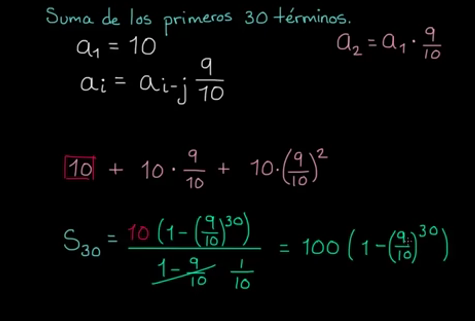 Suma de los primeros 30 términos.
a₁ = 10
a₂ = a₁ · 9/10
aᵢ = aᵢ₋ⱼ 9/10
10 + 10 · 9/10 + 10 · (9/10)²
S₃₀ = 10 (1 - (9/10)³⁰) / (1 - 9/10) 1/10 = 100 (1 - (9/10)³⁰)